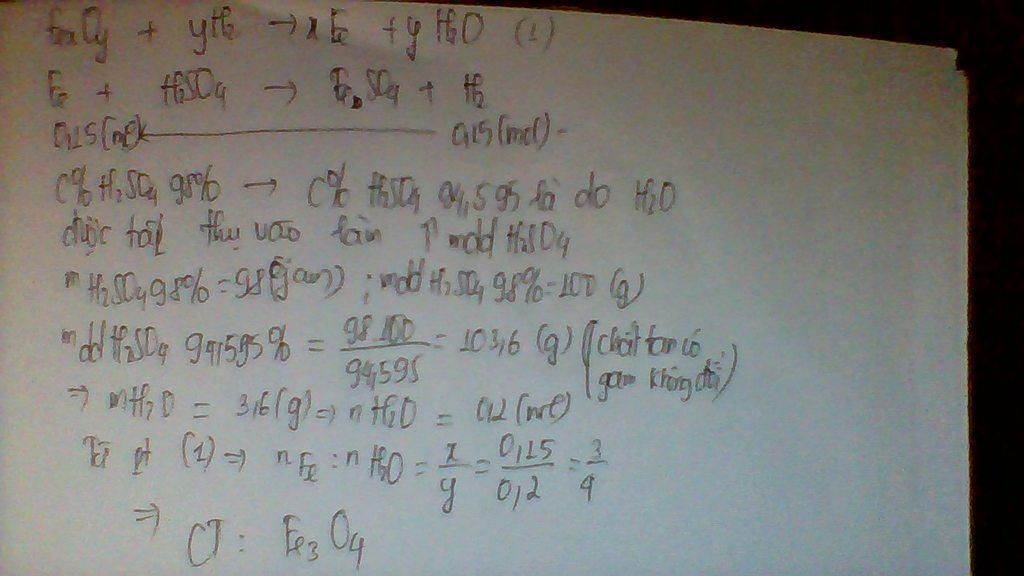 FexOy + yH2 → xFe + yH2O (1)
Fe + H2SO4 → FeSO4 + H2
0,15(mol) 0,15(mol)
C% H2SO4 98% → C% H2SO4 94,595 là do H2O
được hấp thụ vào làm ↑ mdd H2SO4
m H2SO4 98% = 98(gam) ; mdd H2SO4 98% = 100 (g)
mdd H2SO4 94,595% = 98.100/94,595 = 103,6 (g) (chất tan có
gam không đổi)
⇒ mH2O = 3,6(g) ⇒ nH2O = 0,2 (mol)
Từ pt (1) ⇒ nFe : nH2O = x/y = 0,15/0,2 = 3/4
⇒ CT : Fe3O4